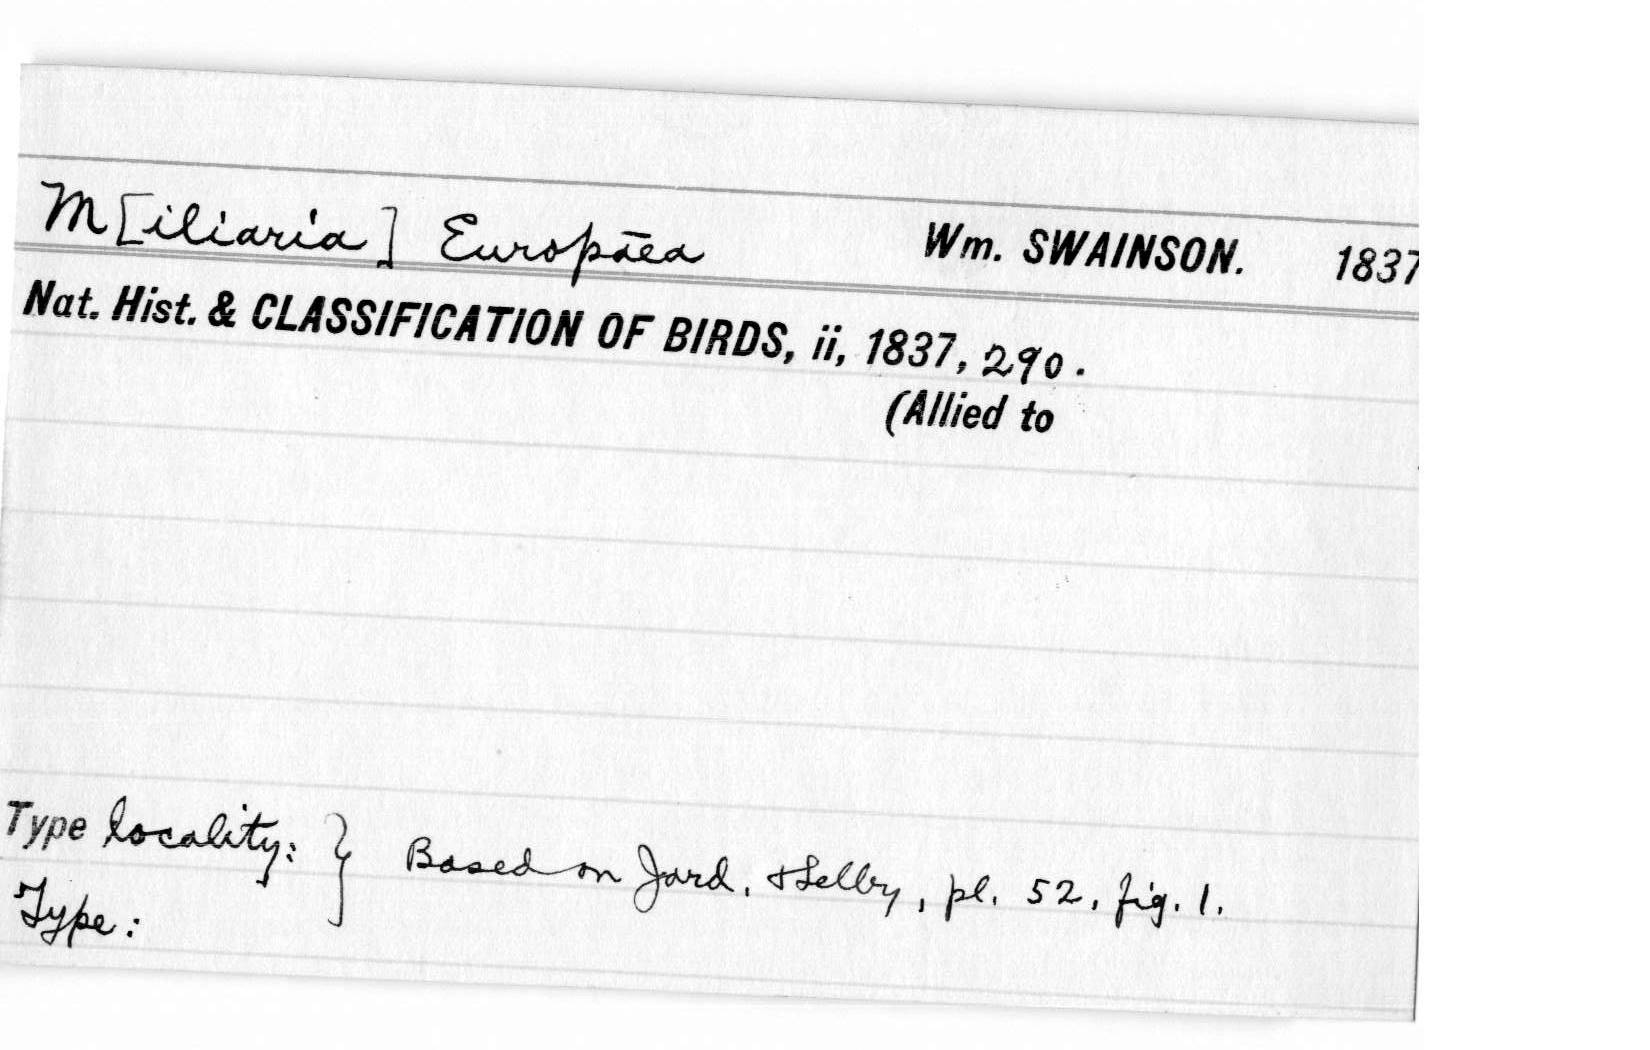 M[iliaria] Europaea Wm. SWAINSON. 1837
Nat. Hist. & CLASSIFICATION OF BIRDS, ii, 1837, 290.
(Allied to
Type locality: } Based on Jard. & Selby, pl. 52, fig. 1.
Type: